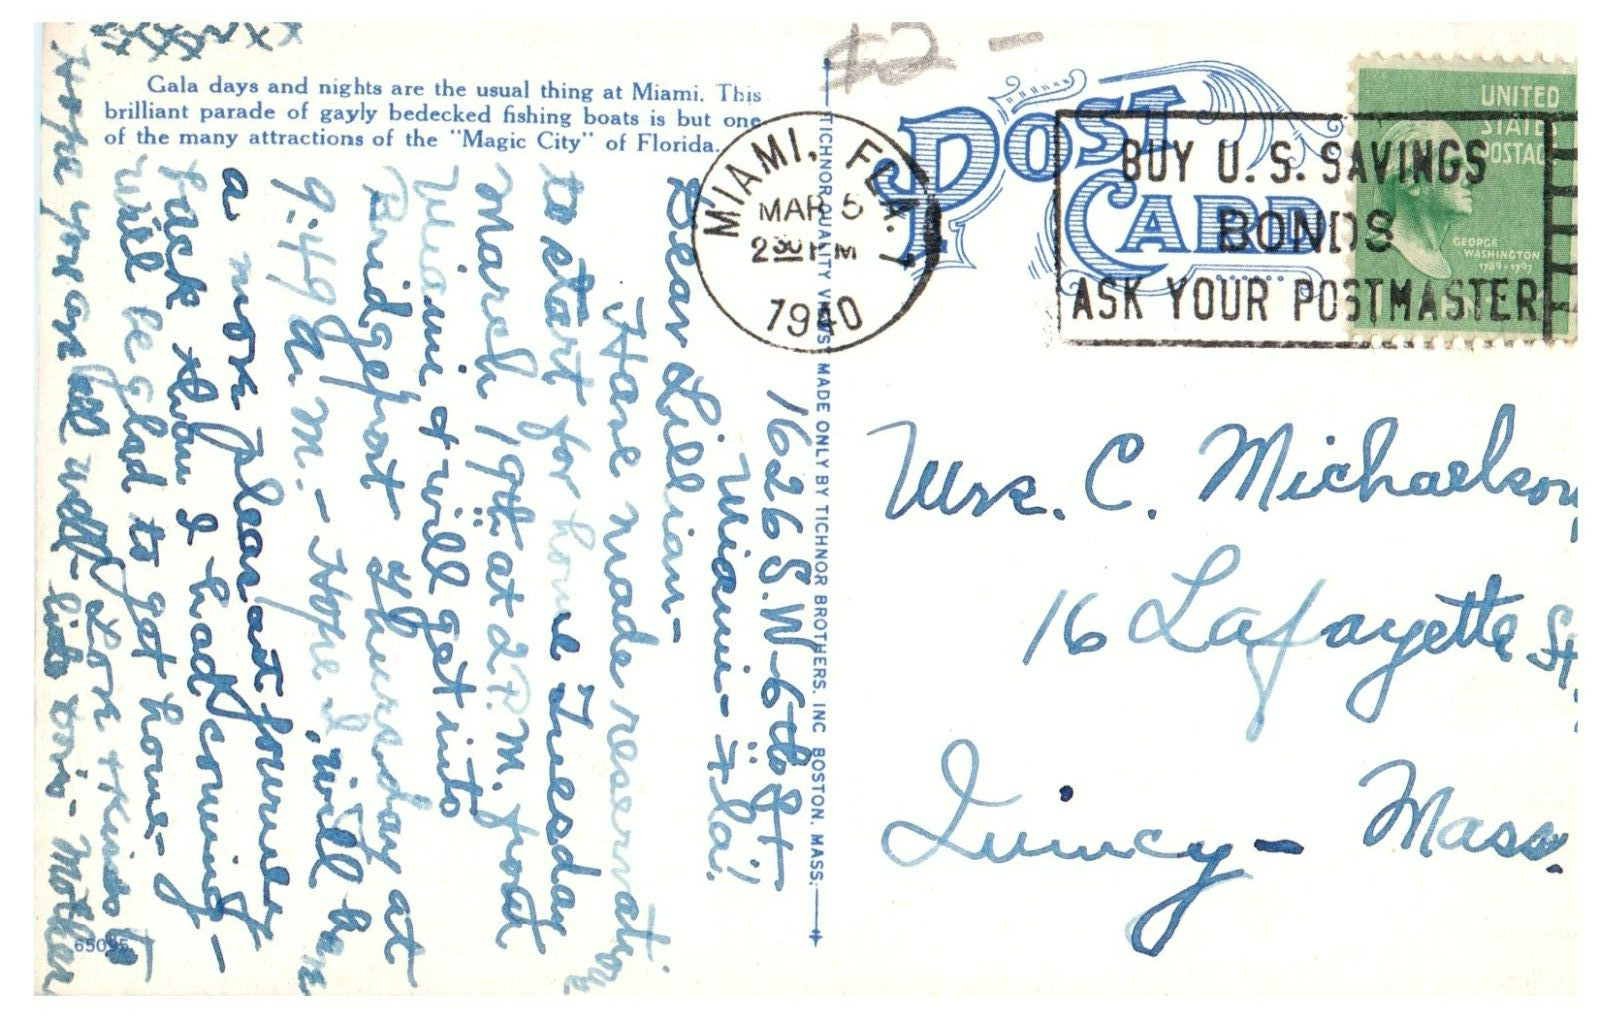 $2 -
Gala days and nights are the usual thing at Miami. This
brilliant parade of gayly bedecked fishing boats is but one
of the many attractions of the "Magic City" of Florida.
POST CARD
MIAMI, FLA.
MAR 5
2 30 PM
1940
BUY U.S. SAVINGS
BONDS
ASK YOUR POSTMASTER
UNITED
STATES
POSTAGE
GEORGE
WASHINGTON
1789-1797
TICHNOR QUALITY VIEWS MADE ONLY BY TICHNOR BROTHERS, INC BOSTON, MASS.
65095
1626 S.W-6th St
Miami-Fla.
Dear Lillian-
Have made reservation
to start for home Tuesday
March 19th at 2 P.M. from
Miami & will get into
Bridgeport Thursday at
9:49 A.M. - Hope I will have
a more pleasant journey
back than I had coming-
will be glad to get home-
Love & Kisses to
Hope you are all well
Mother
XXXXXXX
Mrs. C. Michaelson,
16 Lafayette St.
Quincy - Mass.